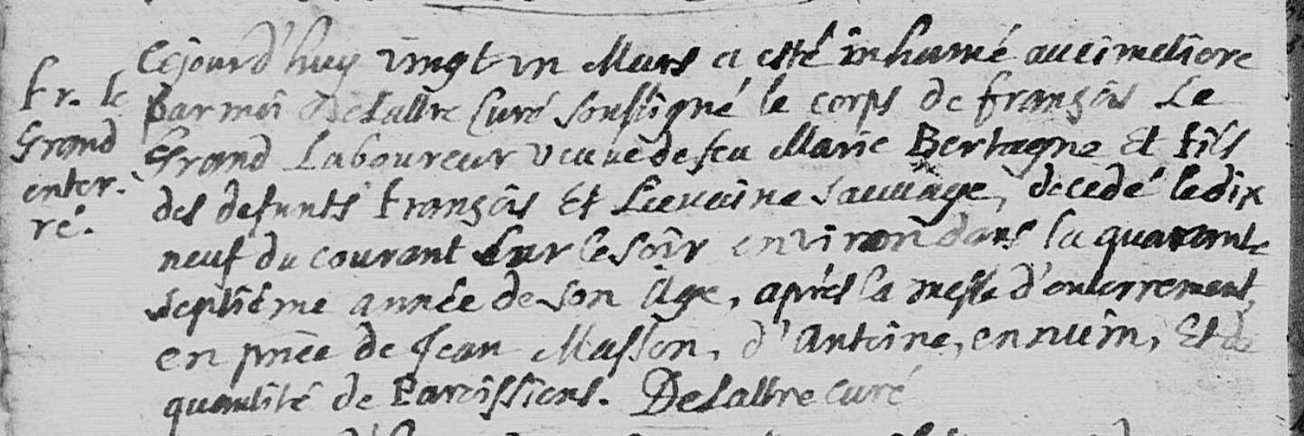 Cejourd'huy vingt un Mars a esté inhumé au cimetiere
Fr. le
par moi Delattre Curé soussigné le corps de françois Le
Grand
Grand Laboureur veuve de feu Marie Bertagne Et fils
enter-
des defunts françois Et Sauvage, decedé le dix
ré.
neuf du courant sur le soir environ dans la quarante
septiéme année de son Age, aprés la messe d'enterrement,
en pnće de Jean Masson, d'Antoine, Et de
quantité de Paroissiens. Delattre curé